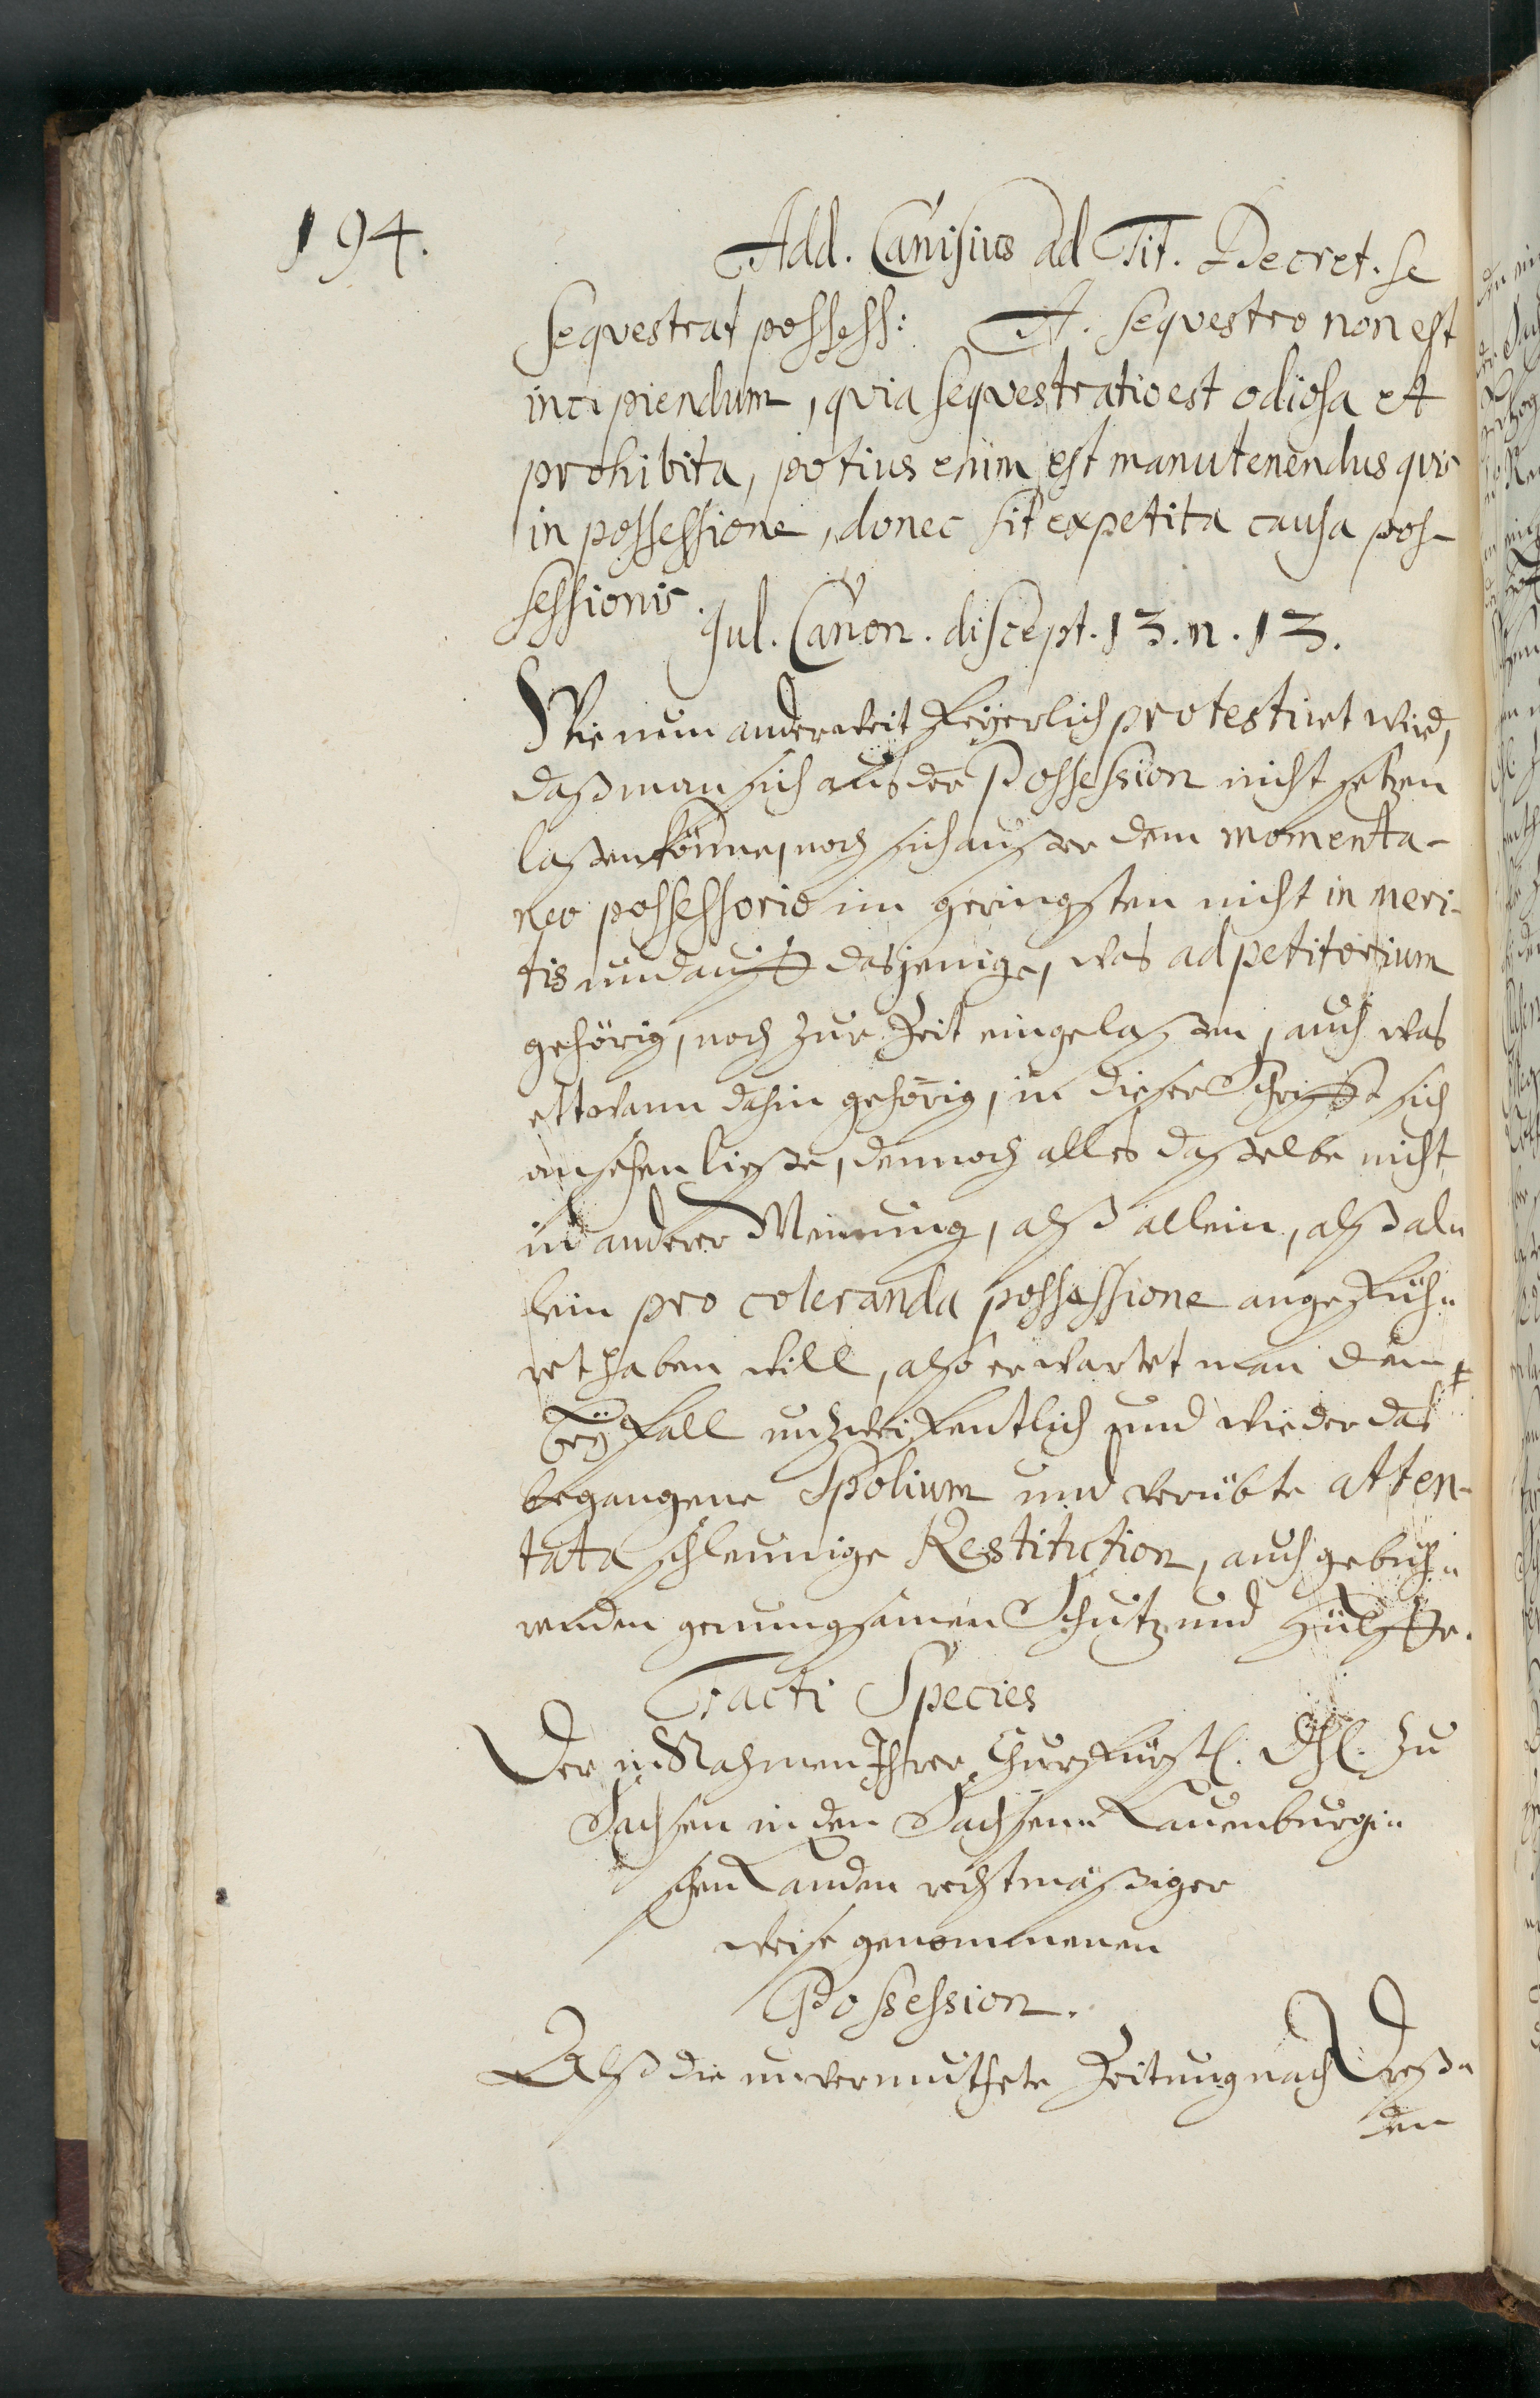 194.
Add. Canisius ad Tit. Decret. se
seqvestrat possess: A. seqvestro non est
incipiendum, qvia seqvestratio est odiosa et
prohibita, potius enim est manutenendus qvis
in possessione, donec sit expetita causa pos-
sessionis.
Jul. Canon. discept. 13. n. 13.
Wie nun anderweit feÿerlich protestiret wird,
daß man sich aus der Possession nicht setzen
laßen könne, noch sich außer dem momenta-
neo possessorio im geringsten nicht in meri-
tis und auff dasjenige, was ad petitorium
gehörig, noch zur Zeit eingelaßen, auch was
ettwann dahin gehörig, in dieser Schrifft sich
ansehen ließe, dennoch alles daßelbe nicht
in anderer Meinung, alß allein, alß al-
lein pro coleranda possessione angefüh-
ret haben will, also erwartet man dem
Beÿfall unzweifentlich und wieder das
begangene Spolium und verübte atten-
tata schleunige Restitution, auch gebüh-
renden genungsamen Schutz und Hülffe.
Facti Species
Der in Nahmen Ihrer Churfürstl. Dhl. zu
Sachsen in den Sachsen-Lauenburgi-
schen Landen rechtmäßiger
weise genommenen
Possession.
Alß die unvermuthete Zeitung nach Dreß-
den